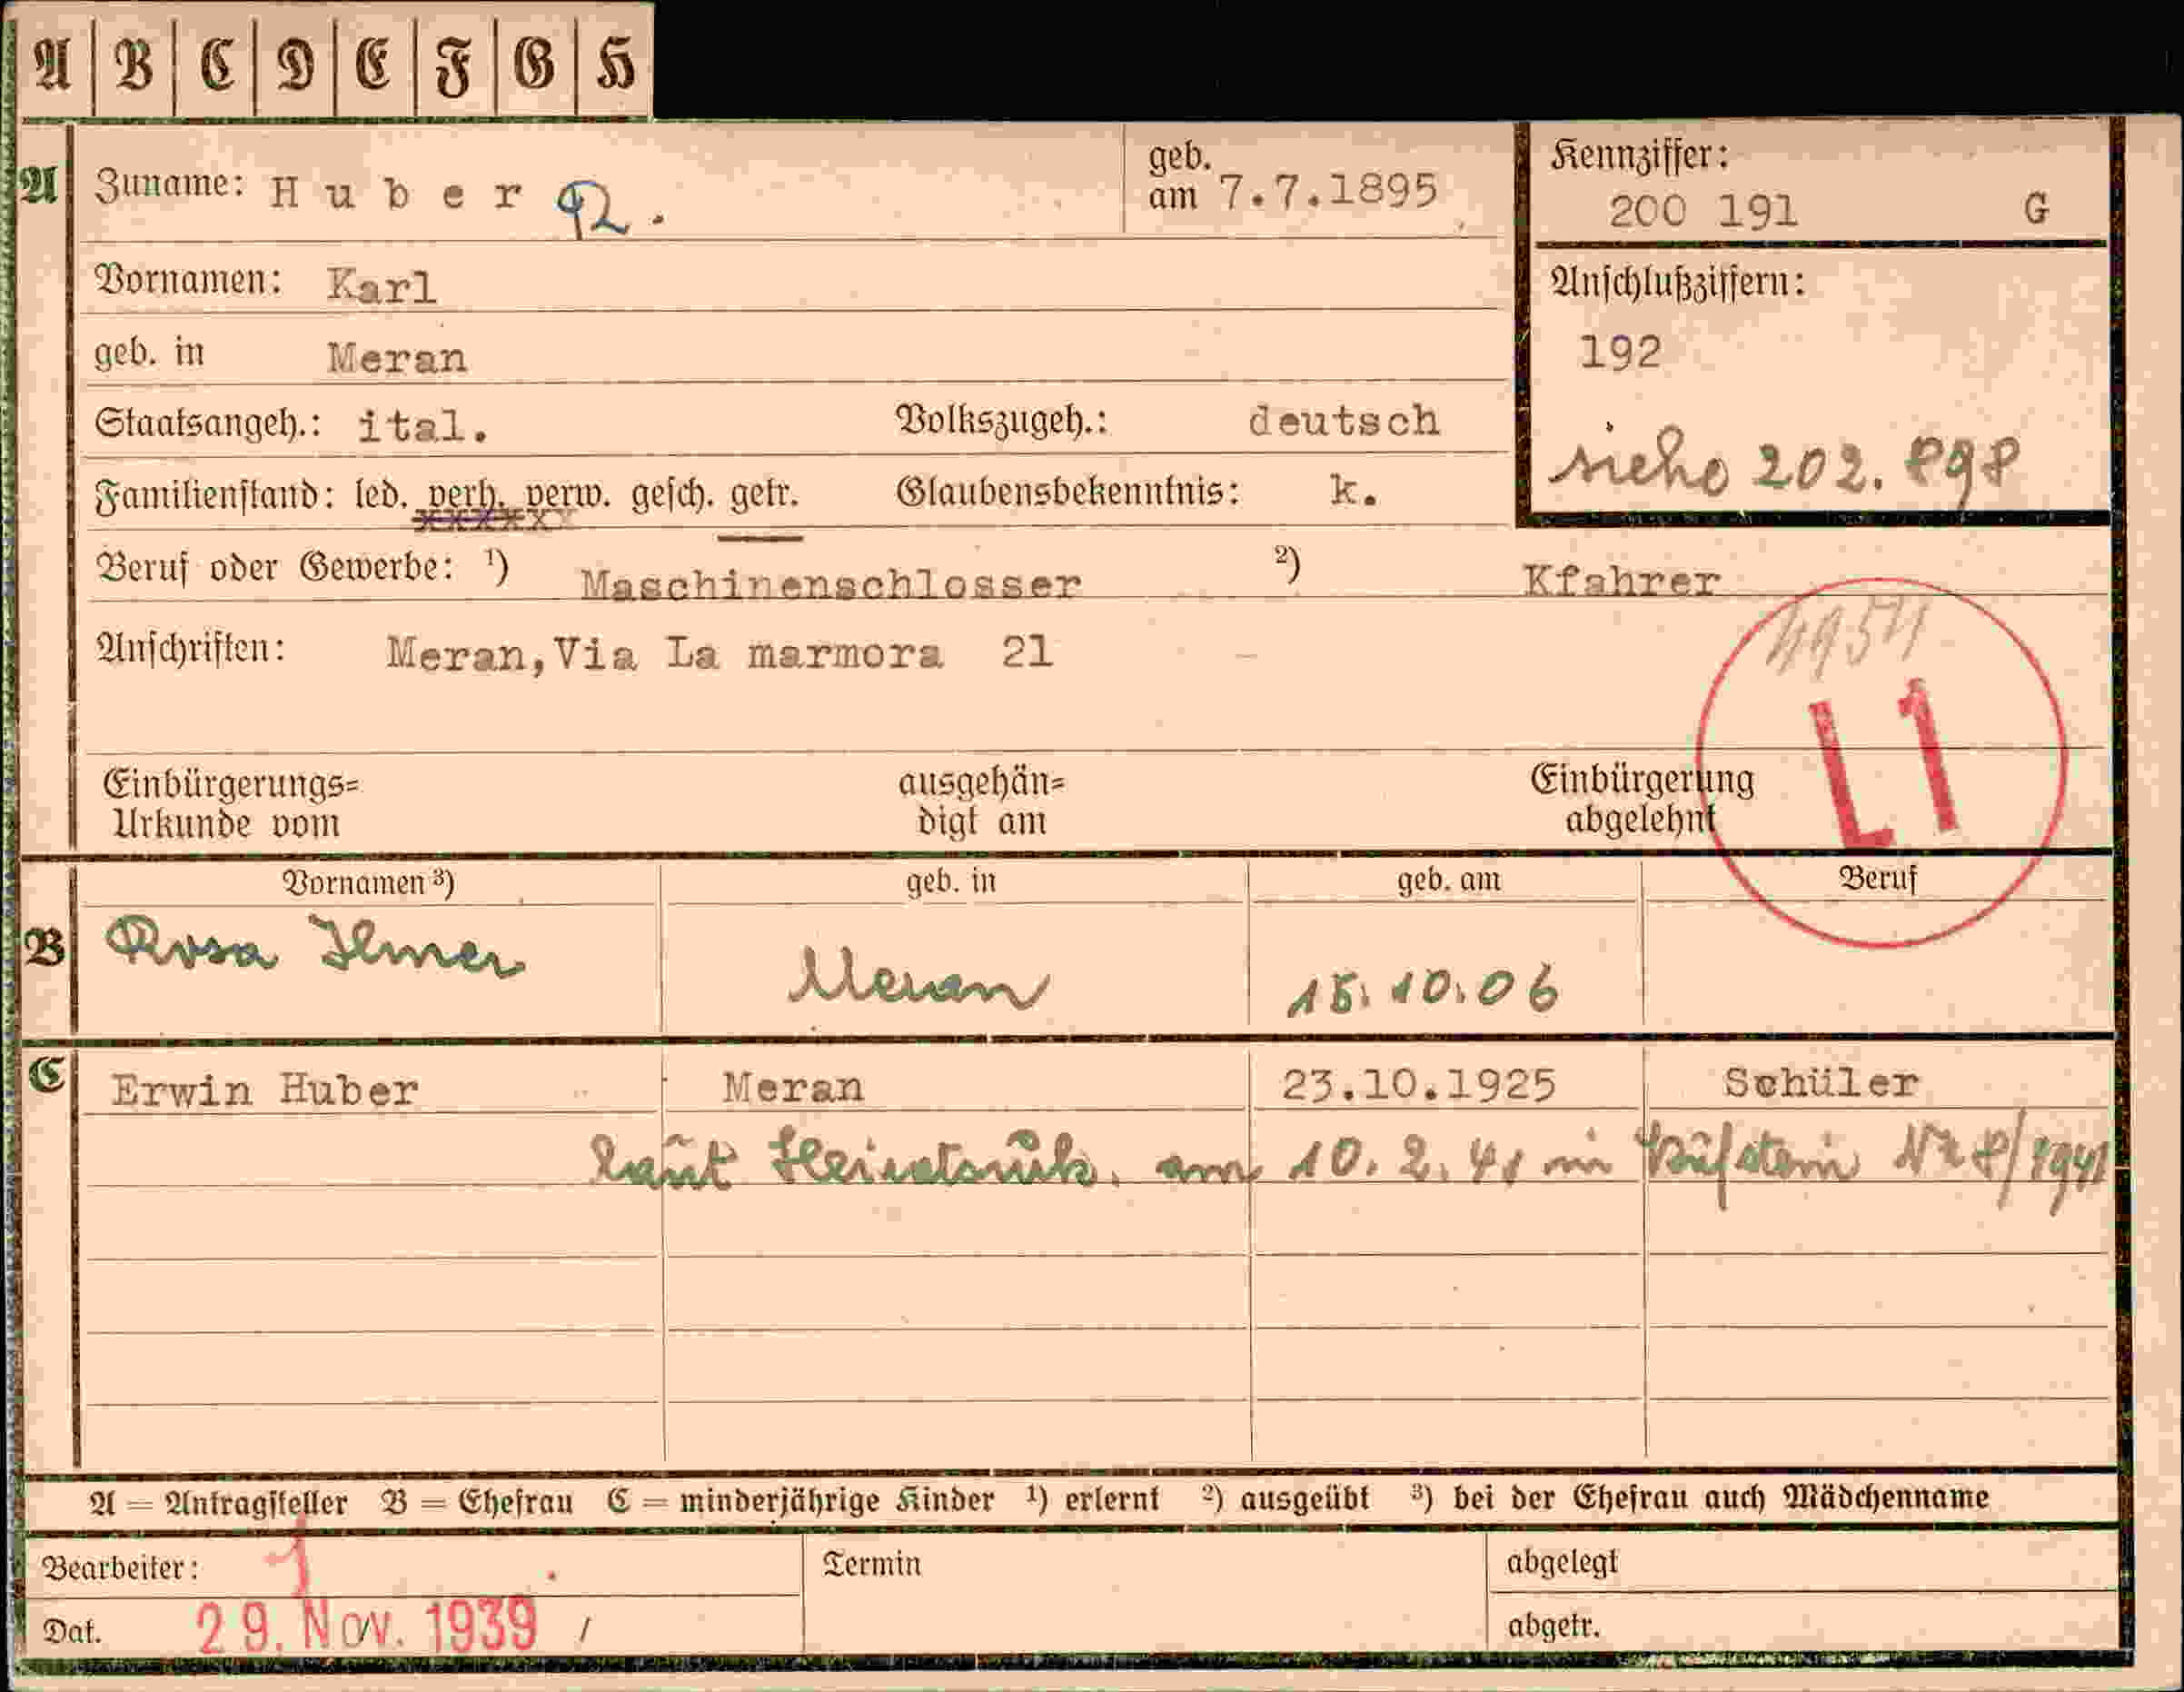 A B C D E F G H
A Zuname: Huber
geb. am 7.7.1895
Kennziffer:
200 191 G
Vornamen: Karl
Anschlußziffern:
192
siehe 202.898
geb. in Meran
Staatsangeh.: ital. Volkszugeh.: deutsch
Familienstand: led. verh. verw. gesch. getr. Glaubensbekenntnis: k.
Beruf oder Gewerbe: 1) Maschinenschlosser 2) Kfahrer
Anschriften: Meran,Via La marmora 21
L1
Einbürgerungs= ausgehän= Einbürgerung
Urkunde vom digt am abgelehnt
Vornamen 3) geb. in geb. am Beruf
B Rosa Ilmer Meran 15.10.06
C Erwin Huber Meran 23.10.1925 Schüler
laut Heiratsurk. am 10.2.41 in Kufstein Nr 8/1941
A = Antragsteller B = Ehefrau C = minderjährige Kinder 1) erlernt 2) ausgeübt 3) bei der Ehefrau auch Mädchenname
Bearbeiter: 1 Termin abgelegt
Dat. 29. Nov. 1939 / abgetr.